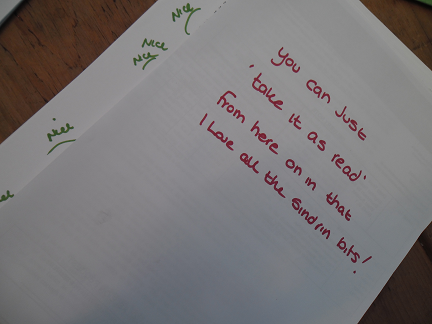 Nice
Nice
Nice
Nice
You can just
'take it as read'
from here on in that
I love all the sindrin bits!